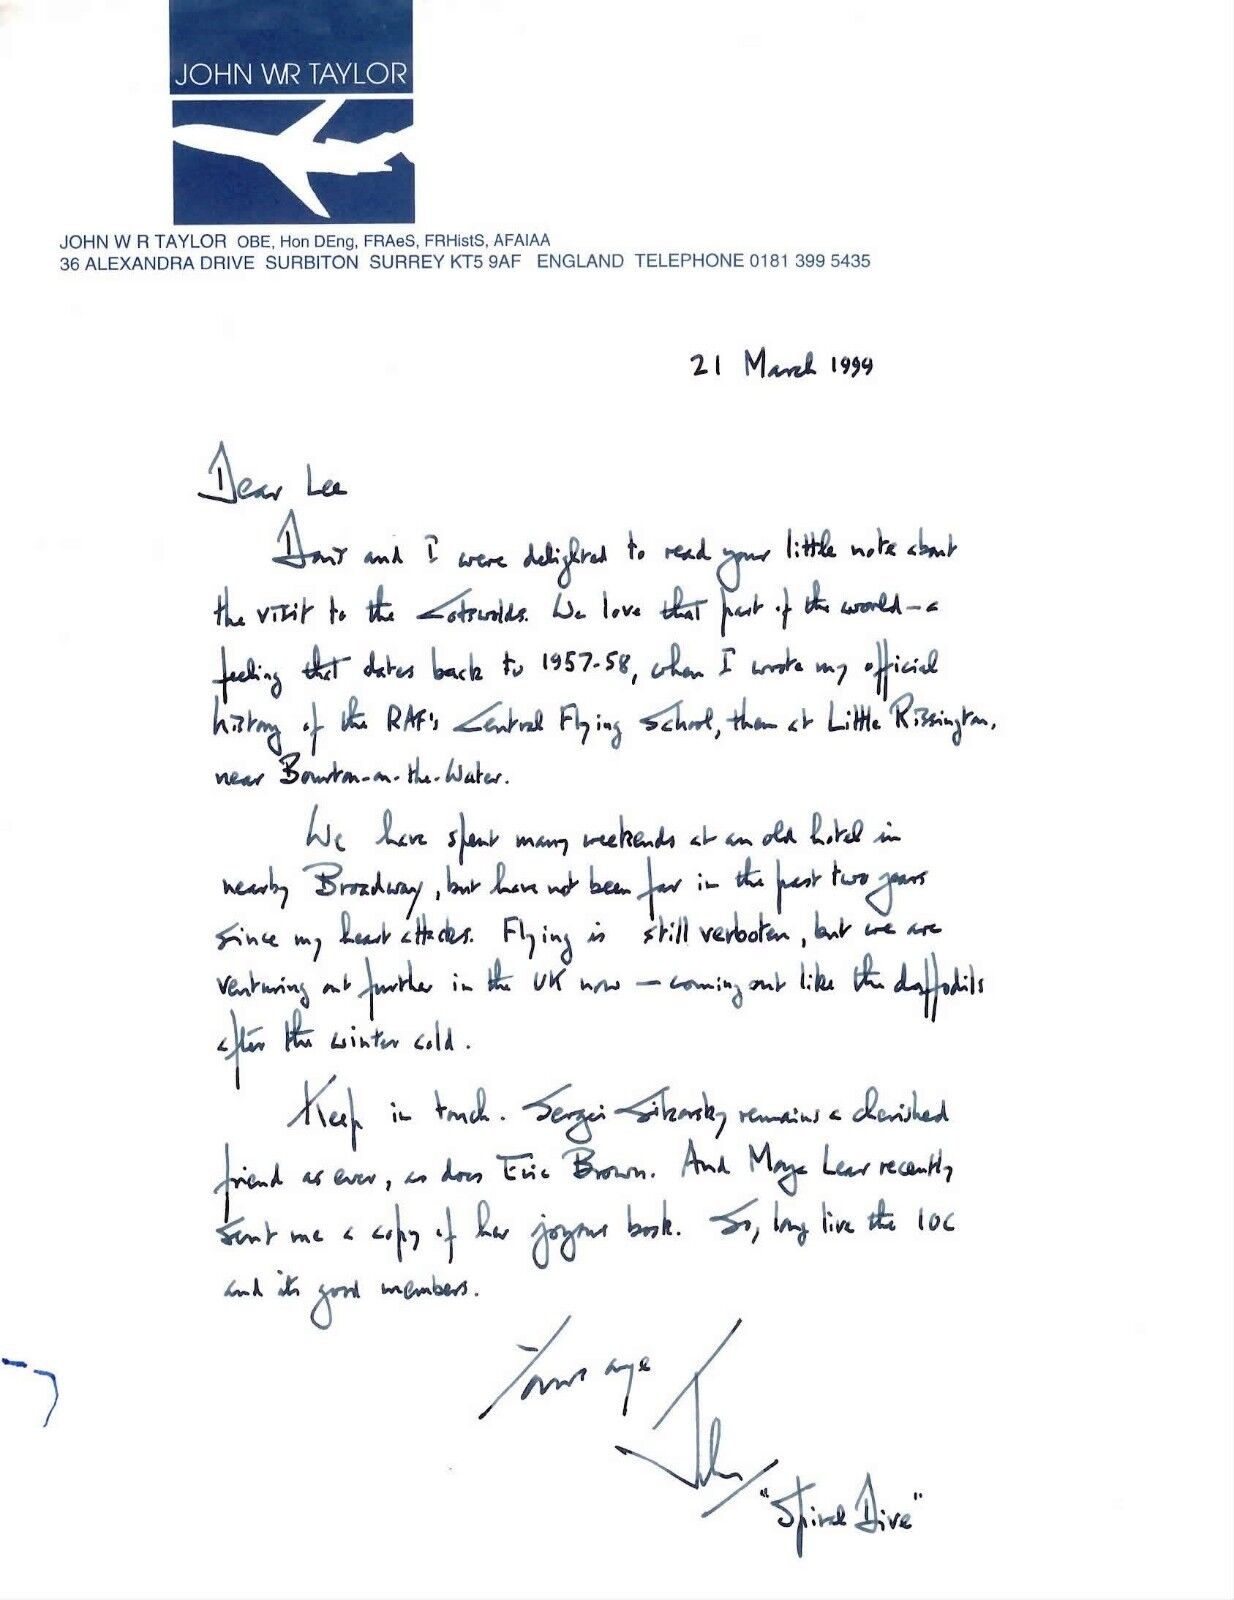 JOHN WR TAYLOR
JOHN W R TAYLOR OBE, Hon DEng, FRAeS, FRHistS, AFAIAA
36 ALEXANDRA DRIVE SURBITON SURREY KT5 9AF ENGLAND TELEPHONE 0181 399 5435
21 March 1999
Dear Lee
Doris and I were delighted to read your little note about
the visit to the Cotswolds. We love that part of the world – a
feeling that dates back to 1957-58, when I wrote my official
history of the RAF's Central Flying School, then at Little Rissington,
near Bourton-on-the-Water.
We have spent many weekends at an old hotel in
nearby Broadway, but have not been far in the past two years
since my heart attacks. Flying is still verboten, but we are
venturing out further in the UK now – coming out like the daffodils
after the winter cold.
Keep in touch. Sergei Sikorsky remains a cherished
friend as ever, as does Eric Brown. And Moya Lear recently
sent me a copy of her joyous book. So, long live the IOC
and its good members.
Yours aye
John
"Spiral Dive"